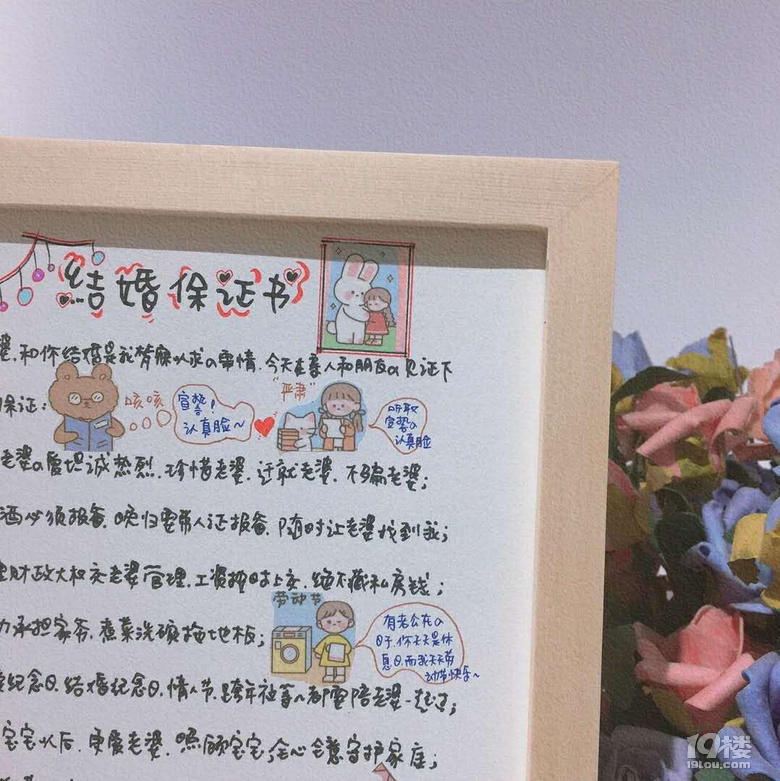 结婚保证书
婆,和你结婚是我梦寐以求の事情.今天在亲人和朋友の见证下
保证:
咳咳
宣誓!
认真脸~
"严肃"
听取
宣誓の
认真脸
老婆の爱坦诚热烈.珍惜老婆.迁就老婆.不骗老婆;
酒必须报备.晚归要带人证报备.随时让老婆找到我;
财政大权交老婆管理.工资按时上交.绝不藏私房钱;
力承担家务.煮菜洗碗拖地板;
劳动节
有老公在の
日子.你天天是休
息日.而我天天劳
动节快乐~
纪念日.结婚纪念日.情人节.跨年夜等~都要陪老婆一起过;
宝宝以后.更爱老婆.照顾宝宝,全心全意守护家庭;
19楼
19lou.com